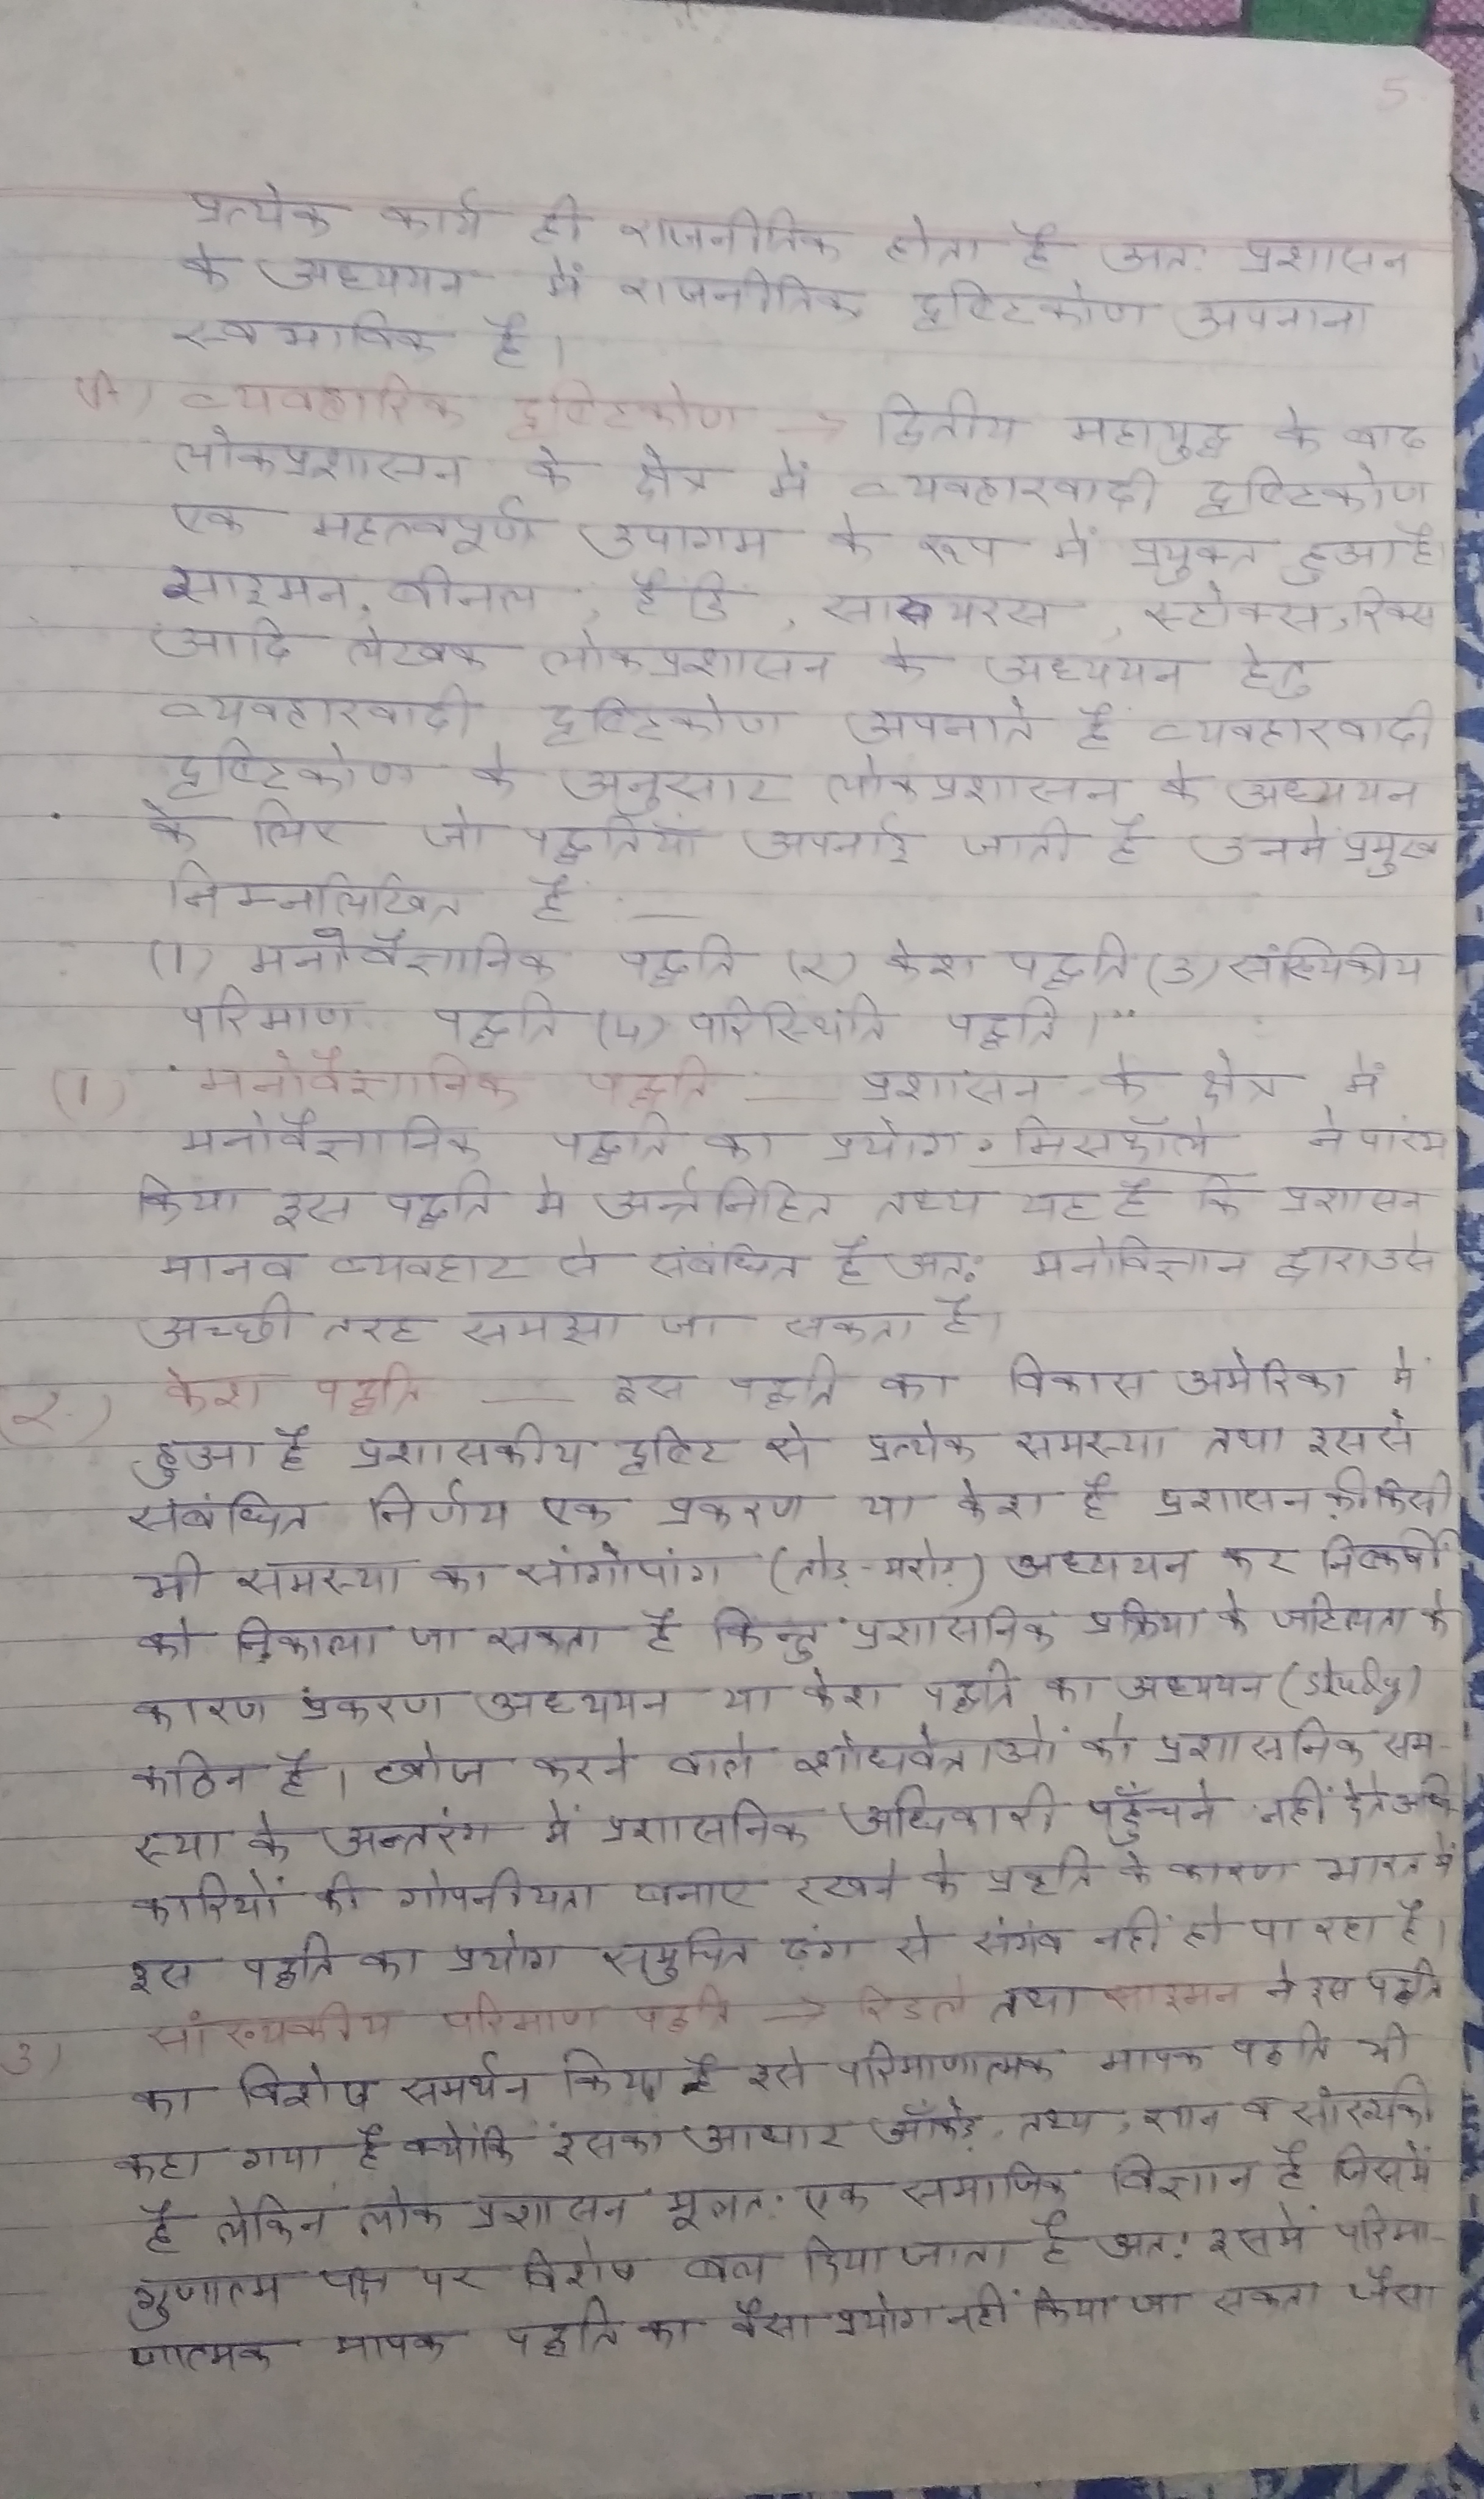 5
प्रत्येक कार्य ही राजनीतिक होता है अतः प्रशासन
के अध्ययन में राजनीतिक दृष्टिकोण अपनाना
स्वभाविक है।
व्यवहारिक दृष्टिकोण → द्वितीय महायुद्ध के बाद
लोकप्रशासन के क्षेत्र में व्यवहारवादी दृष्टिकोण
एक महत्वपूर्ण उपागम के रूप में प्रयुक्त हुआ है।
साइमन, वीनल, हैडि, सायरस, स्टोक्स, रिक्स
आदि लेखक लोकप्रशासन के अध्ययन हेतु
व्यवहारवादी दृष्टिकोण अपनाते हैं व्यवहारवादी
दृष्टिकोण के अनुसार लोकप्रशासन के अध्ययन
के लिए जो पद्धतियाँ अपनाई जाती है उनमे प्रमुख
निम्नलिखित हैं :—
(1) मनोवैज्ञानिक पद्धति (२) केश पद्धति (3) संख्यिकीय
परिमाण पद्धति (4) परिस्थिति पद्धति।
(1) मनोवैज्ञानिक पद्धति — प्रशासन के क्षेत्र में
मनोवैज्ञानिक पद्धति का प्रयोग मिसफॉले ने पारंभ
किया इस पद्धति मे अर्न्तनिहित तथ्य यह है कि प्रशासन
मानव व्यवहार से संबंधित है अतः मनोविज्ञान द्वारा उसे
अच्छी तरह समझा जा सकता है।
(२) केश पद्धति — इस पद्धति का विकास अमेरिका में
हुआ है प्रशासकीय दृष्टि से प्रत्येक समस्या तथा इससे
संबंधित निर्णय एक प्रकरण या केश है प्रशासन की किसी
भी समस्या का सांगोपांग (तोड़-मरोड़) अध्ययन कर निष्कर्षों
को निकाला जा सकता है किन्तु प्रशासनिक प्रक्रिया के जटिलता के
कारण प्रकरण अध्ययन या केश पद्धति का अध्ययन (Study)
कठिन है। खोज करने वाले शोधवेत्ताओं को प्रशासनिक सम-
स्या के अन्तरंग में प्रशासनिक अधिकारी पहुँचने नहीं देते अधि-
कारियों की गोपनीयता बनाए रखने के प्रवृति के कारण भारत में
इस पद्धति का प्रयोग समुचित ढंग से संभव नहीं हो पा रहा है।
3) सांख्यकीय परिमाण पद्धति → रिडले तथा साइमन ने इस पद्धति
का विशेष समर्थन किया है इसे परिमाणात्मक मापक पद्धति भी
कहा गया है क्योंकि इसका आधार आँकड़े, तथ्य, ज्ञान व सांख्यकी
है लेकिन लोक प्रशासन मूलतः एक समाजिक विज्ञान है जिसमें
गुणात्म पक्ष पर विशेष बल दिया जाता है अतः इसमें परिमा-
णात्मक मापक पद्धति का वैसा प्रयोग नहीं किया जा सकता जैसा